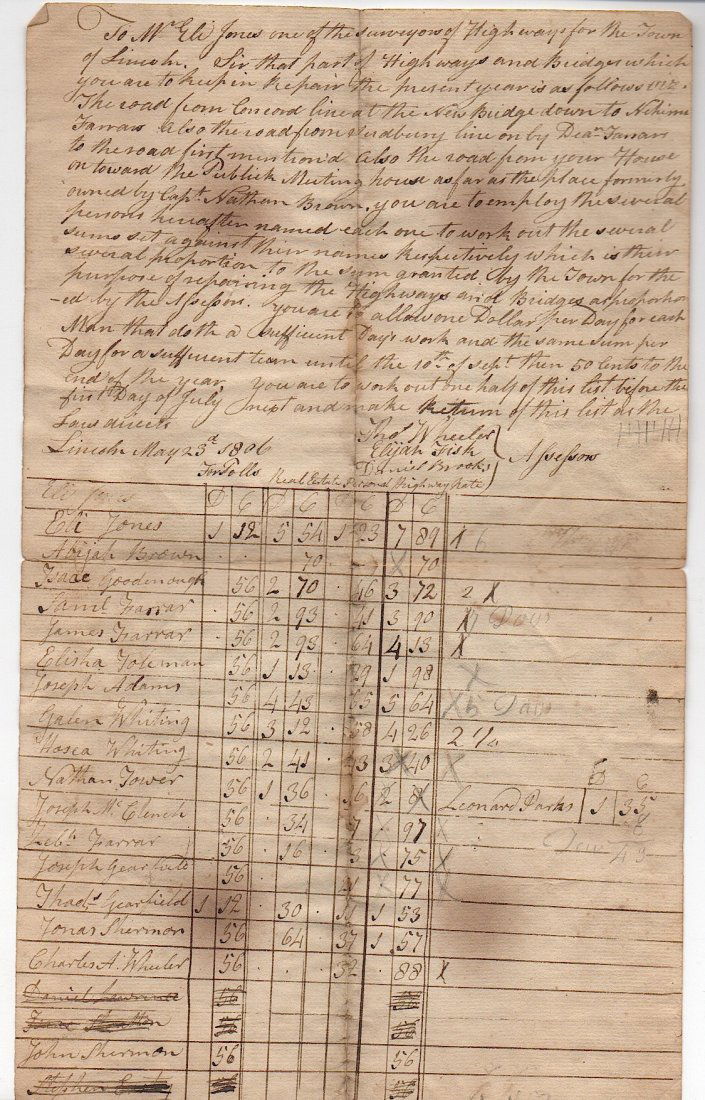 To Mr. Eli Jones one of the surveyors of Highways for the Town
of Lincoln. Sir that part of Highways and Bridges which
you are to keep in Repair the present year is as follows viz.
The road from Concord line at the New Bridge down to
Farrars also the road from Sudbury line on by Dean Farrars
to the road first mention'd also the road from your House
on toward the Publick Meeting house as far as the place formerly
owned by Capt. Nathan Brown, you are to employ the several
persons hereafter named each one to work out the several
sums set against their names Respectively which is their
several proportion to the sum granted by the Town for the
purpose of repairing the Highways and Bridges as proportion
-ed by the Assessors. you are to allow one Dollar per Day for each
Man that doth a sufficient Days work and the same sum per
Day for a sufficient team until the 10th of Sept. then 50 Cents to the
end of the year you are to work out one half of this list before the
first Day of July next and make Return of this list as the
Law directs
Lincoln May 23d 1806
Thos. Wheeler
Elijah Fish
Daniel Brooks
Assessors
For Polls Real Estate Personal Highway Rate
Eli Jones D C D C D C D C
Eli Jones 1 12 5 54 1 23 7 89
Abijah Brown 70 70
Isaac Goodenough 56 2 70 46 3 72 2 X
Saml Farrar 56 2 93 41 3 90 Days
James Farrar 56 2 93 64 4 13 X
Elisha Foleman 56 1 13 29 1 98 X
Joseph Adams 56 4 43 65 5 64 X 5 Days
Galen Whiting 56 3 12 58 4 26
Hosea Whiting 56 2 41 43 3 40 X
Nathan Tower 56 1 36 16 2 8 Leonard Parks 1 35
Joseph McClench 56 34 7 97
Zebn Farrar 56 16 3 75 X
Joseph Gearfield 56 21 77 X
Thads Gearfield 1 12 30 11 1 53
Jonas Shermon 56 64 37 1 57
Charles A. Wheeler 56 32 88 X
Daniel Lawrence 56 56
Isaac Stratton 56 56
John Shermon 56 56
Stephen 56 56